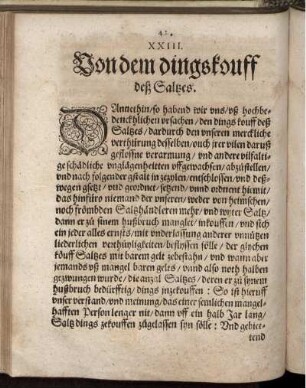 42.
XXIII.
Von dem dingskouff
deß Saltzes.
Dannethin/ so habend wir vns/ vß hochbe-
dencklichen vrsachen/ den dings kouff deß
Saltzes/ dardurch den vnseren merckliche
verthürung desselben/ ouch irer vilen daruß
geflossne verarmung/ vnd andere vilfalti-
ge schädliche vnglägenheitten vffgewachsen/ abzüstellen/
vnd nach folgender gstalt in zezylen entschlossen/ vnd deß-
wegen gsetzt/ vnd geordnet/ setzend/ vnnd ordnent hiemit/
das hinfüro niemand der vnseren/ weder von heimschen/
noch frömbden Saltzhändleren mehr/ vnd wyter Saltz/
dann er zü sinem hußbruch manglet/ inkouffen/ vnd sich
ein jeder alles ernsts/ mit vnderlassung anderer vnnützen
liederlichen verthünligkeiten/ beflyssen sölle/ der glychen
köuff Saltzes mit barem gelt zebezahlen/ vnd wann aber
jemands vß mangel baren gelts/ vnnd also noth halben
gezwungen wurde/ die anzal Saltzes/ deren er zü synem
hußbruch bedürfftig/ dings inzekouffen: So ist hieruff
vnser verstand/ vnd meinung/ das einer semlichen mangel-
hafften Person lenger nit/ dann vff ein halb Jar lang/
Saltz dings zekouffen zügelassen syn sölle: Vnd gebiet-
tend